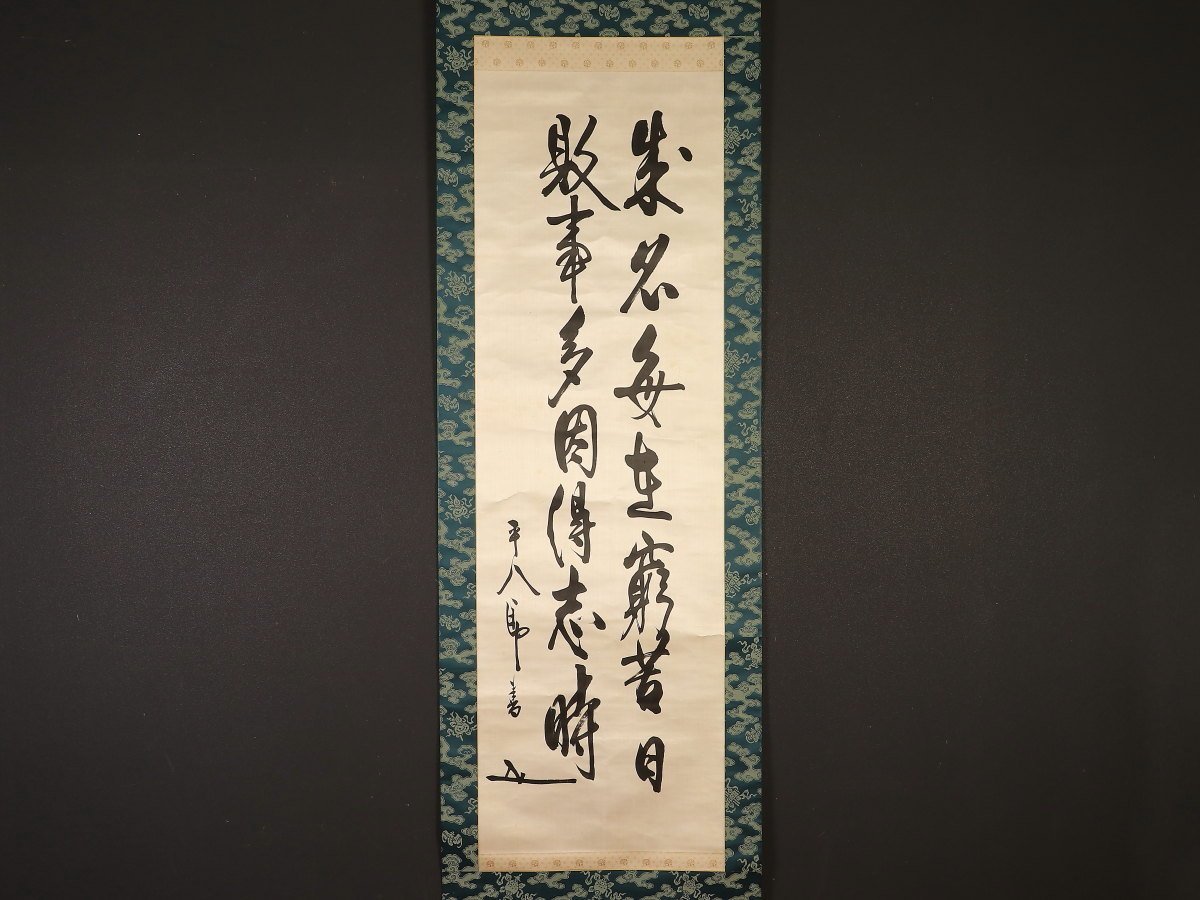 成名毎在窮苦日
敗事多因得志時
平八郎書